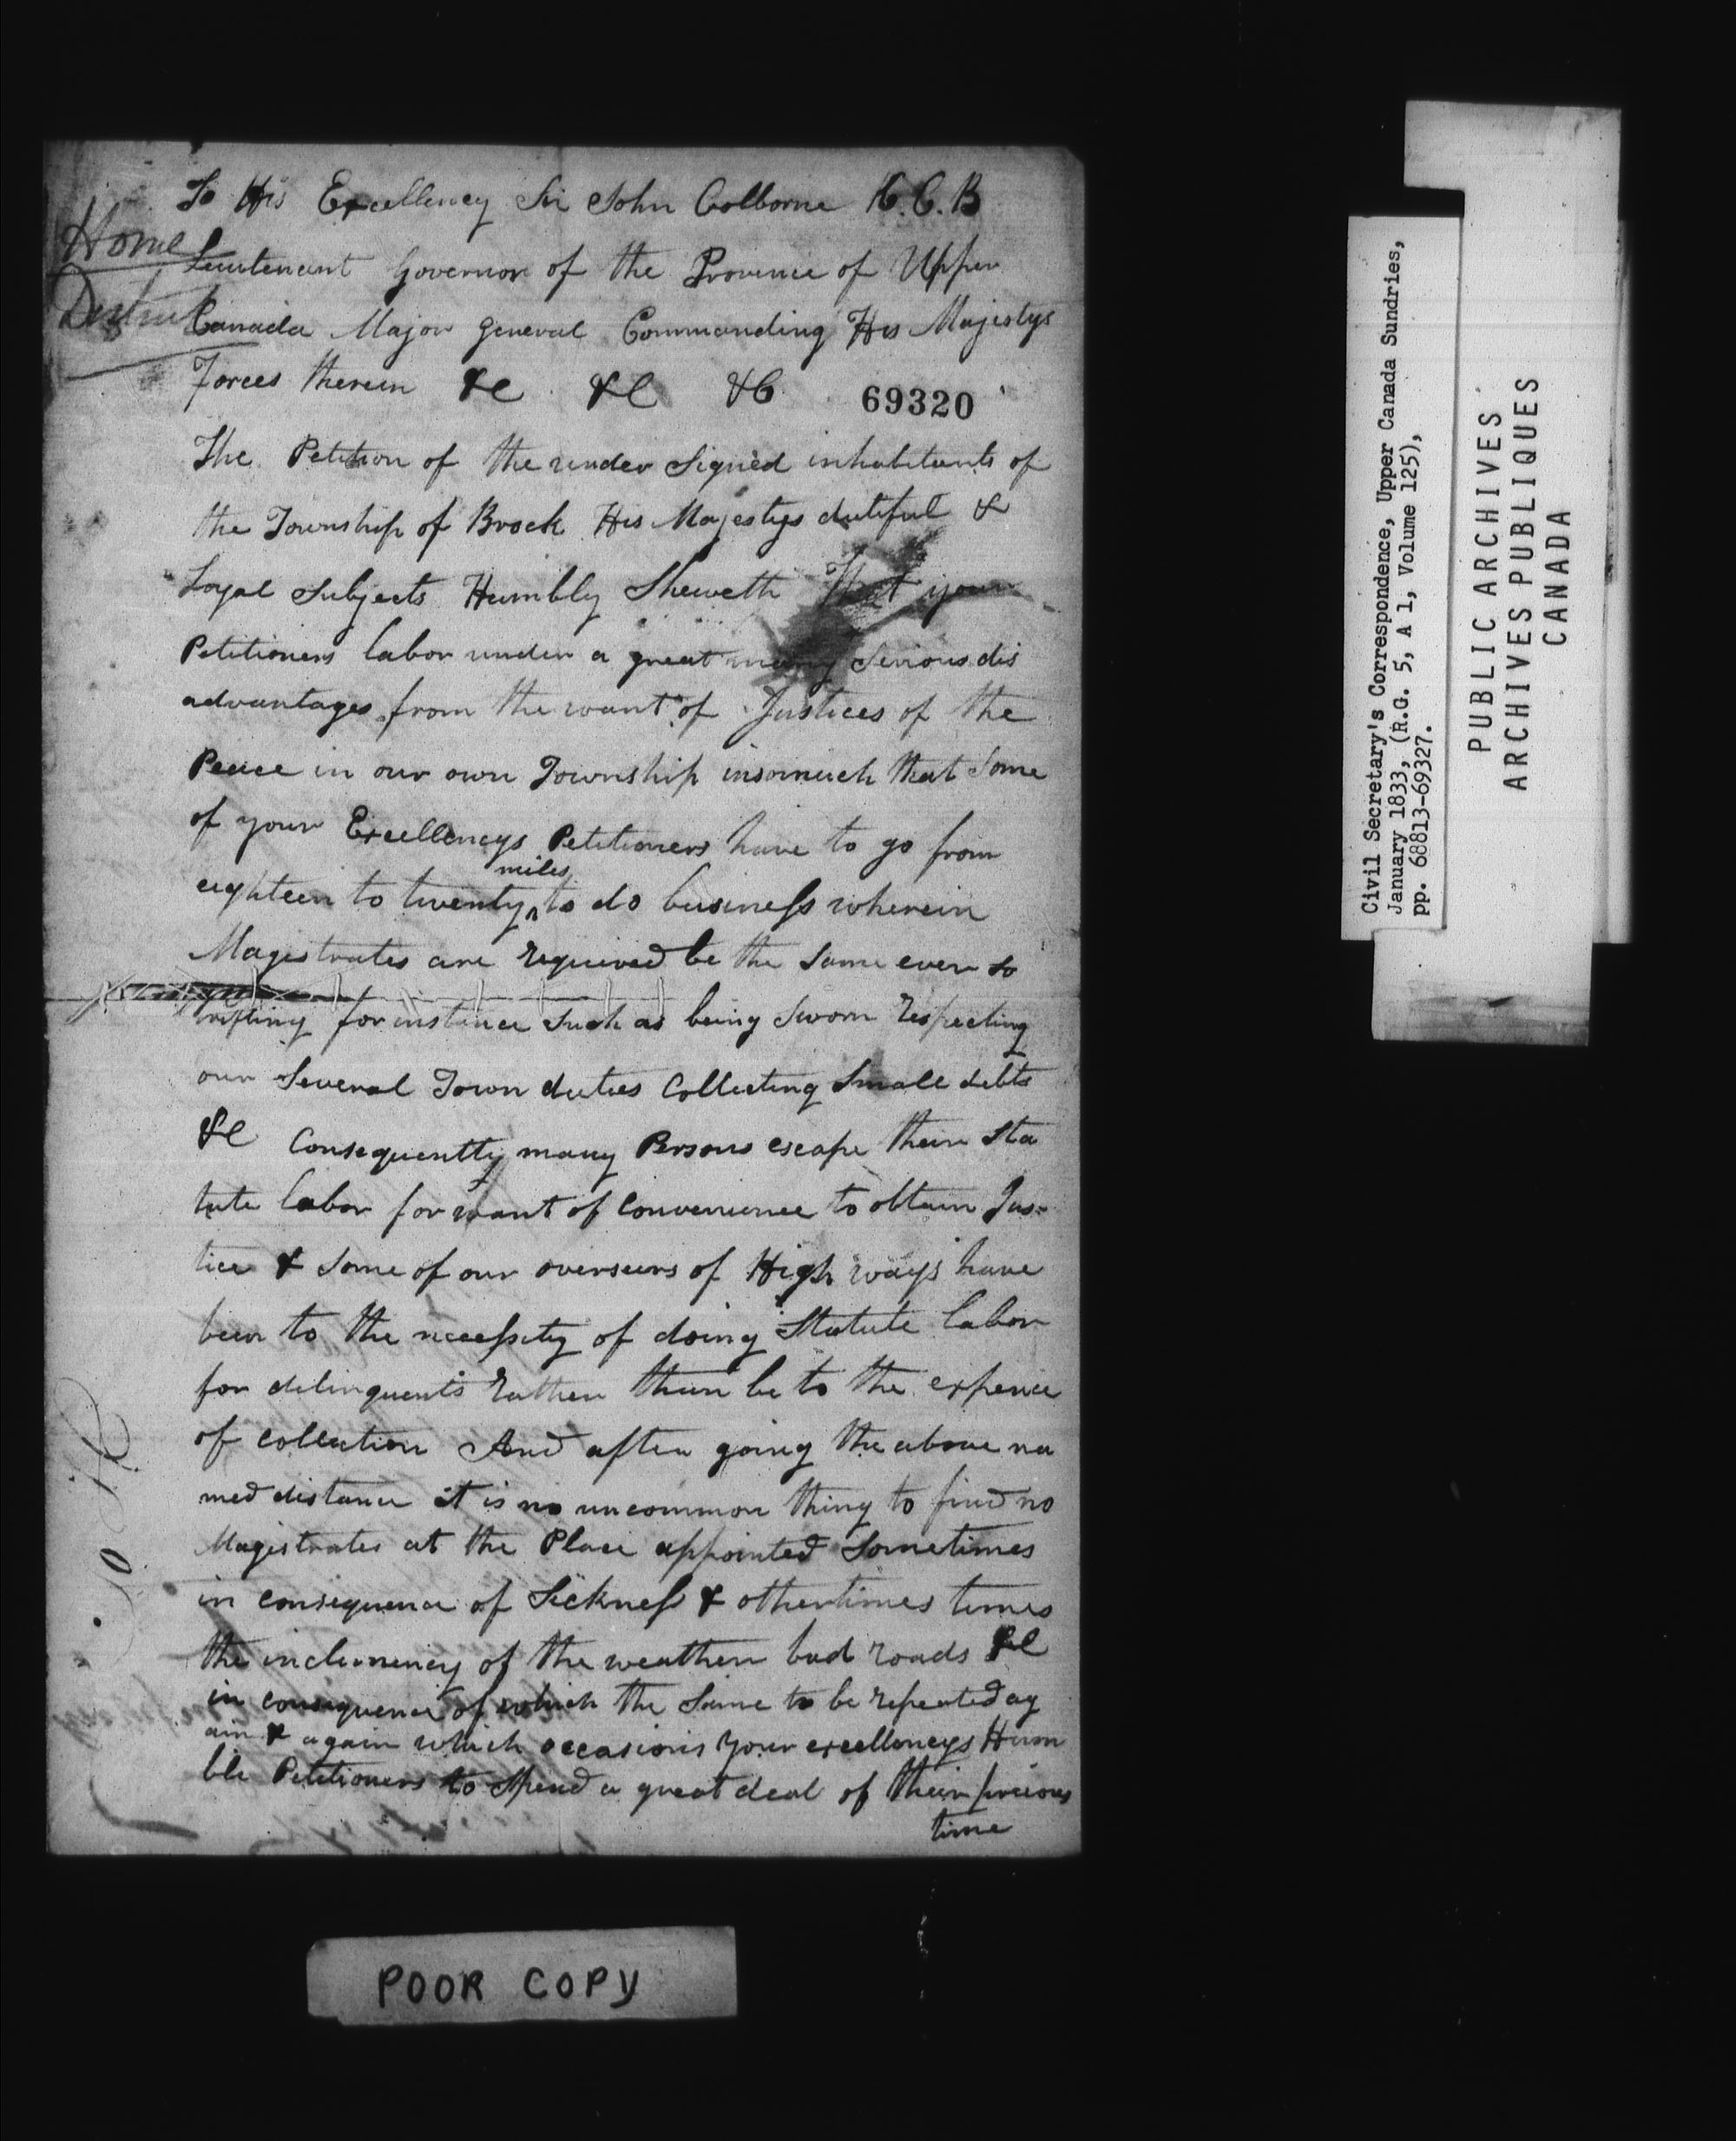 To His Excellency Sir John Colborne K.C.B
Home
Lieutenant Governor of the Province of Upper
District
Canada Major General Commanding His Majestys
Forces therein &c &c &c
69320
The Petition of the under Signed inhabitants of
the Township of Brock His Majestys dutiful &
Loyal Subjects Humbly Sheweth That your
Petitioners labor under a great many Serious dis
advantages from the want of Justices of the
Peace in our own Township insomuch that Some
of your Excellencys Petitioners have to go from
miles
eighteen to twenty ^ to do business wherein
Magistrates are required be the Same ever so
trifling for instance Such as being Sworn respecting
our Several Town duties Collecting Small debts
&c Consequently many Persons escape their Sta
tute labor for want of Convenience to obtain Jus-
tice & Some of our overseers of High ways have
been to the necessity of doing Statute labor
for delinquents rather than be to the expence
of collection And after going the above na
med distance it is no uncommon thing to find no
Magistrates at the Place appointed Sometimes
in consequence of Sickness & othertimes times
the inclemency of the weather bad roads &c
in consequence of which the Same to be repeated ag
ain & again which occasions your excellencys Hum
ble Petitioners to Spend a great deal of their precious
time
POOR COPY
Civil Secretary's Correspondence, Upper Canada Sundries,
January 1833, (R.G. 5, A 1, Volume 125),
pp. 68813-69327.
PUBLIC ARCHIVES
ARCHIVES PUBLIQUES
CANADA